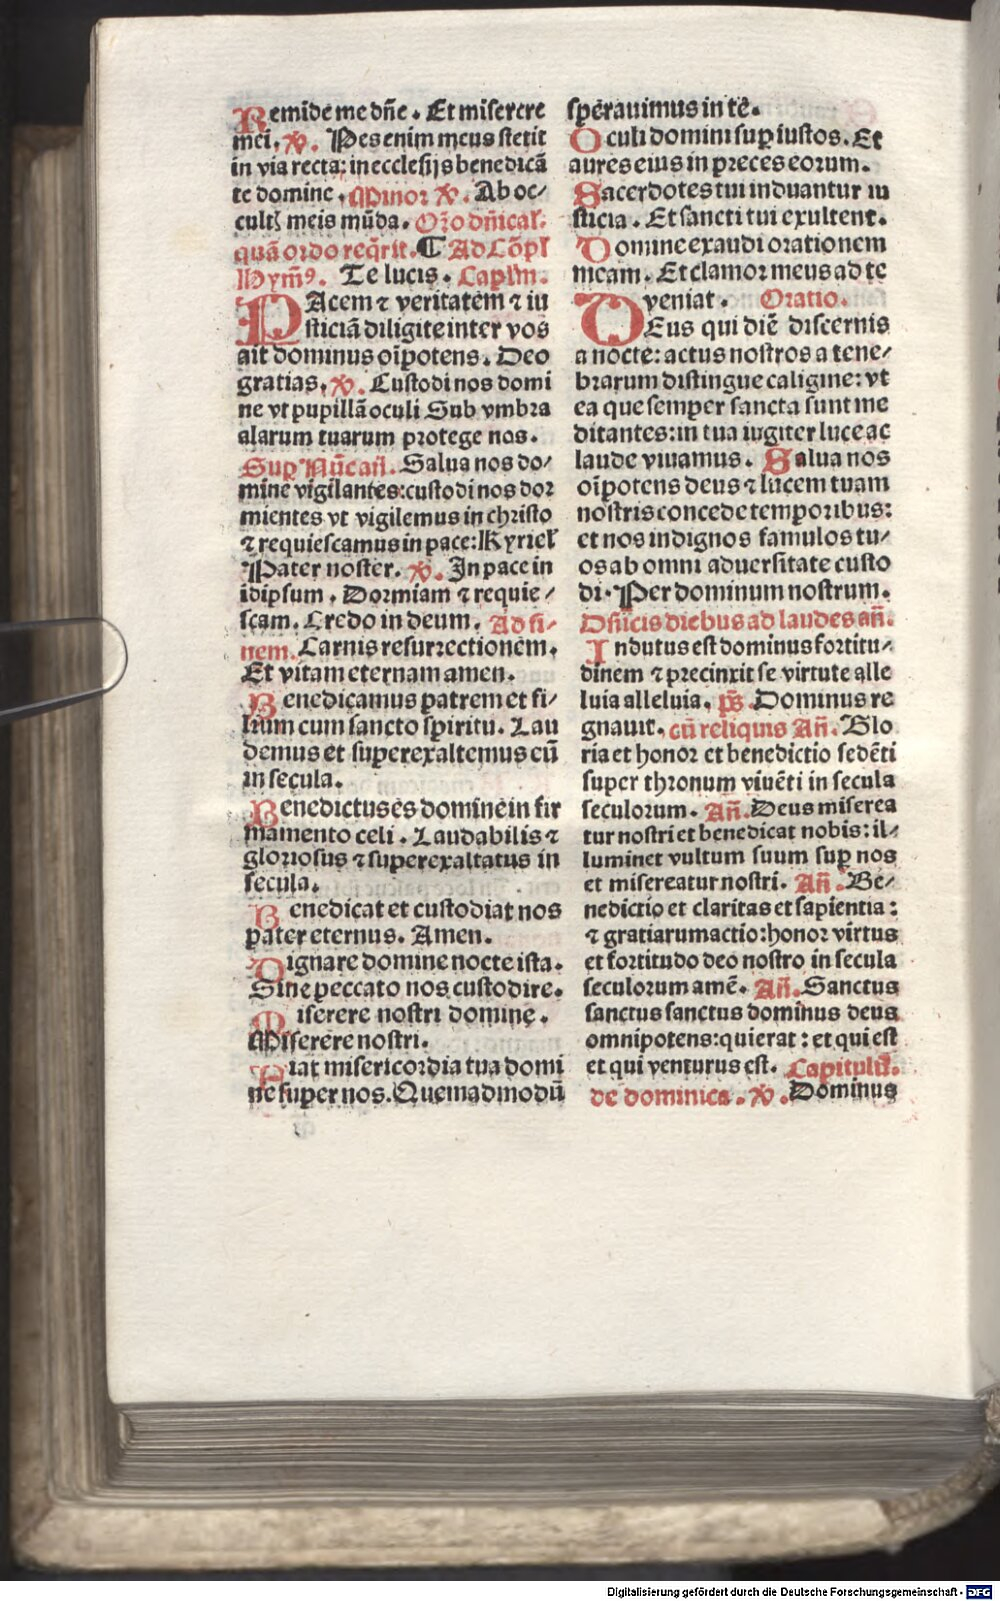 Remide me dn̄e . Et miserere
mei. ꝟ. Pes enim meus stetit
in via recta: in ecclesijs benedicā
te domine . Minor ꝟ. Ab oc⸗
cultꝭ meis mūda. Oꝛo dn̄ical'.
quā oꝛdo reqͥrit. ¶ Ad Cōpl'
Hymꝰ. Te lucis . Caplm̄.
PAcem ⁊ veritatem ⁊ iu
sticiā diligite inter vos
ait dominus oīpotens. Deo
gratias. ꝟ. Custodi nos domi
ne vt pupillā oculi Sub vmbꝛa
alarum tuarum pꝛotege nos.
Suꝑ Nūc an̄. Salua nos do⸗
mine vigilantes: custodi nos doꝛ
mientes vt vigilemus in christo
⁊ requiescamus in pace: Kyriel'
Pater noster. ꝟ. In pace in
idipsum . Doꝛmiam ⁊ requie⸗
scam. Credo in deum. Ad fi⸗
nem. Carnis resurꝛectionem.
Et vitam eternam amen.
Benedicamus patrem et fi⸗
lium cum sancto spiritu. Lau
demus et superexaltemus eū
in secula.
Benedictus es domine in fir
mamento celi . Laudabilis ⁊
gloꝛiosus ⁊ superexaltatus in
secula.
Benedicat et custodiat nos
pater eternus. Amen.
Dignare domine nocte ista.
Sine peccato nos custodire.
Miserere nostri domine .
Miserere nostri.
Fiat misericoꝛdia tua domi
ne super nos. Quemadmodū
sperauimus in te.
Oculi domini suꝑ iustos. Et
aures eius in pꝛeces eoꝛum.
Sacerdotes tui induantur iu
sticia . Et sancti tui exultent.
Domine exaudi oꝛationem
meam. Et clamoꝛ meus ad te
veniat . Oꝛatio.
DEus qui diē discernis
a nocte: actus nostros a tene⸗
bꝛarum distingue caligine: vt
ea que semper sancta sunt me
ditantes: in tua iugiter luce ac
laude viuamus. Salua nos
oīpotens deus ⁊ lucem tuam
nostris concede tempoꝛibus:
et nos indignos famulos tu⸗
os ab omni aduersitate custo
di. Per dominum nostrum.
Osiicis diebus ad laudes an̄.
Indutus est dominus foꝛtitu⸗
dinem ⁊ pꝛecinxit se virtute alle
luia alleluia. ps̄. Dominus re
gnauit. cū reliquis An̄. Glo
ria et honoꝛ et benedictio sedēti
super thꝛonum viuēti in secula
seculoꝛum. An̄. Deus miserea
tur nostri et benedicat nobis: il⸗
luminet vultum suum suꝑ nos
et misereatur nostri. An̄. Be⸗
nedictio et claritas et sapientia:
⁊ gratiarum actio: honoꝛ virtus
et foꝛtitudo deo nostro in secula
seculoꝛum amē. An̄. Sanctus
sanctus sanctus dominus deus
omnipotens: qui erat: et qui est
et qui venturus est. Capitulū.
de dominica . ꝟ. Dominus
Digitalisierung gefördert durch die Deutsche Forschungsgemeinschaft - DFG